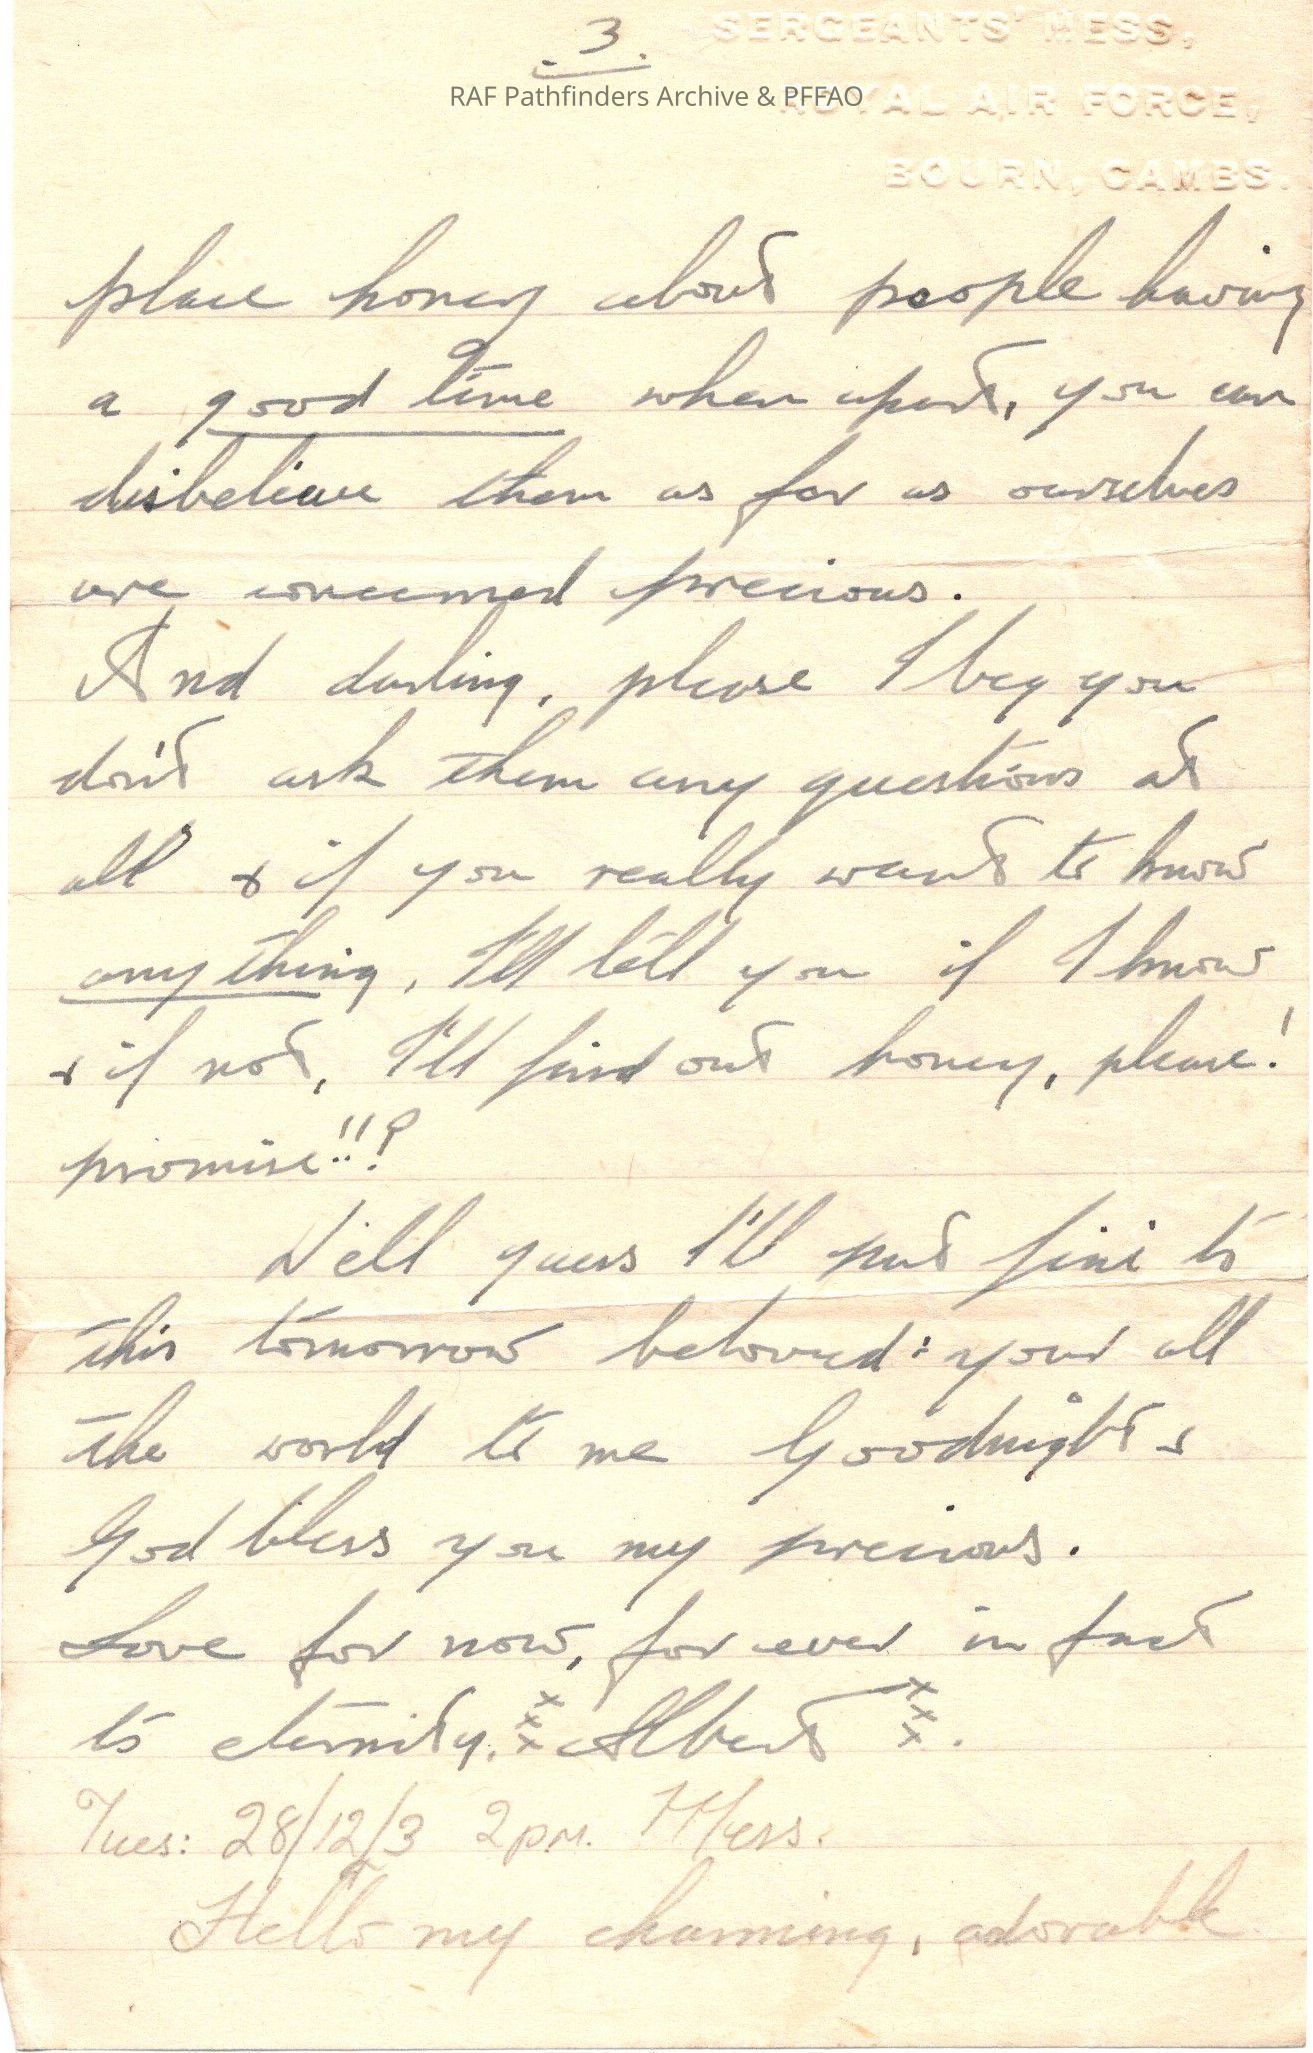 . 3 .
SERGEANTS' MESS,
RAF Pathfinders Archive & PFFAO
ROYAL AIR FORCE,
BOURN, CAMBS.
place honey about people having
a good time when apart, you can
disbelieve them as far as ourselves
are concerned precious.
And darling, please I beg you
don't ask them any questions at
all & if you really want to know
anything, I'll tell you if I know
& if not, I'll find out honey, please!
promise!!?
Well guess I'll put fini to
this tomorrow beloved: your all
the world to me Goodnight &
God bless you my precious.
Love for now, for ever in fact
to eternity. xxx Albert xxx.
Tues: 28/12/3 2pm. Mess.
Hello my charming, adorable